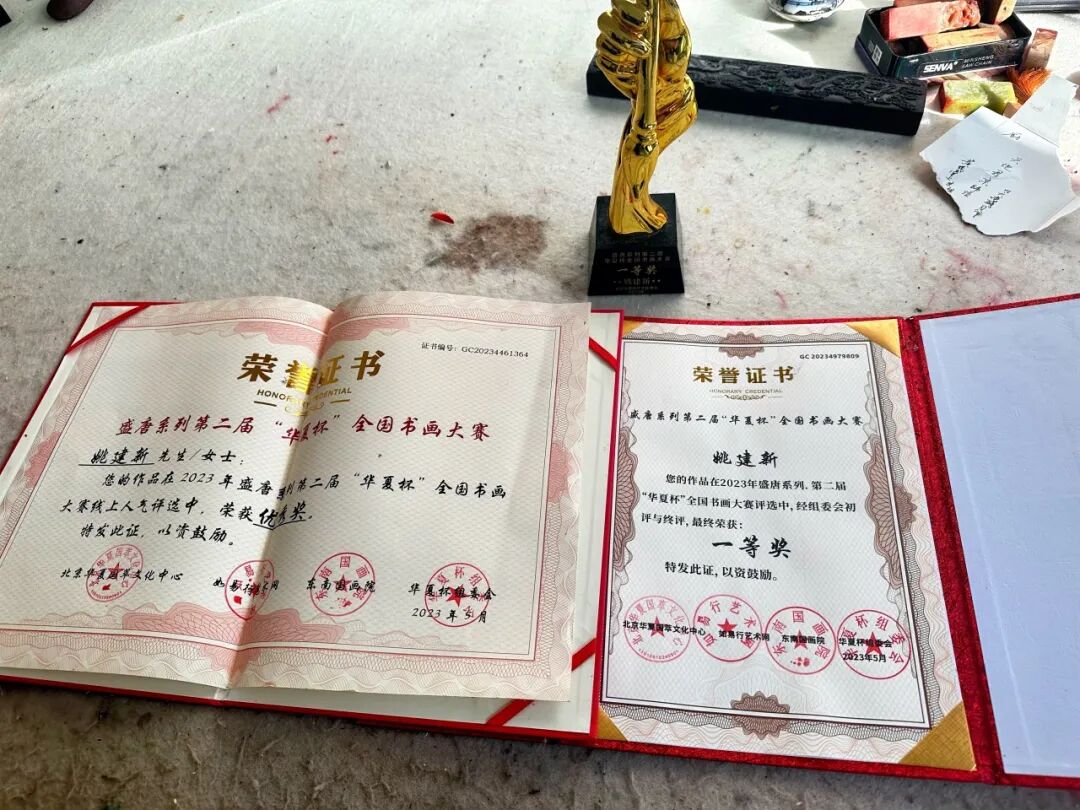 SENVA
盛唐系列第二届
华夏杯全国书画大赛
一等奖
姚建新
证书编号：GC20234461364
荣誉证书
HONORARY CREDENTIAL
盛唐系列第二届“华夏杯”全国书画大赛
姚建新 先生/女士：
您的作品在2023年盛唐系列第二届“华夏杯”全国书画
大赛线上人气评选中，荣获优秀奖。
特发此证，以资鼓励。
北京华夏国萃文化中心 如易行艺术网 东南国画院 华夏杯组委会
2023年5月
GC 20234979809
荣誉证书
HONORARY CREDENTIAL
盛唐系列第二届“华夏杯”全国书画大赛
姚建新
您的作品在2023年盛唐系列、第二届
“华夏杯”全国书画大赛评选中，经组委会初
评与终评，最终荣获：
一等奖
特发此证，以资鼓励。
北京华夏国萃文化中心 如易行艺术网 东南国画院 华夏杯组委会
2023年5月